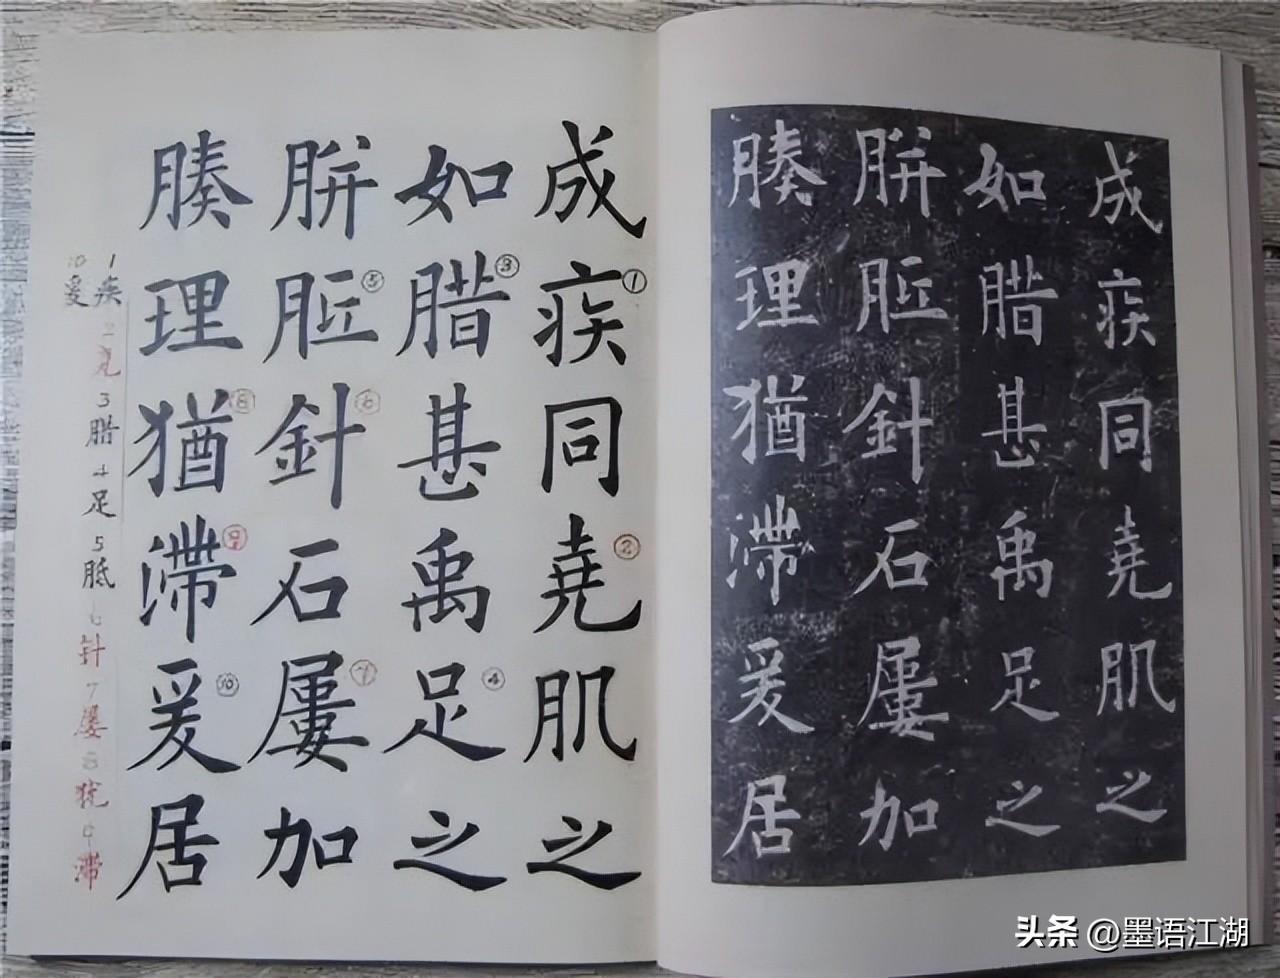 成疾同堯肌之
如腊甚禹足之
胼胝針石屢加
腠理猶滯爰居
成疾①同堯②肌之
如腊③甚禹足④之
胼胝⑤針⑥石屢⑦加
腠理猶⑧滯⑨爰⑩居
1疾2尧3腊4足5胝6针7屡8犹9滞
10爰
头条 @墨语江湖